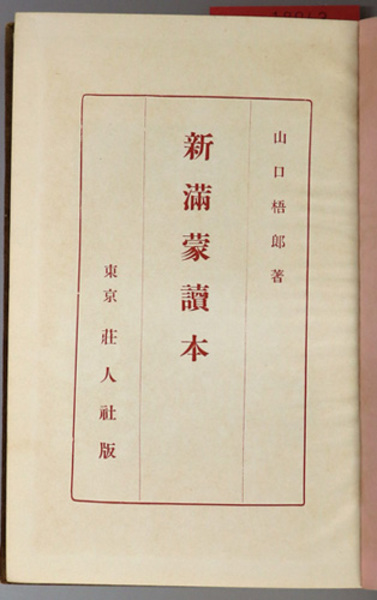 山口梧郎著
新滿蒙讀本
東京 莊人社版